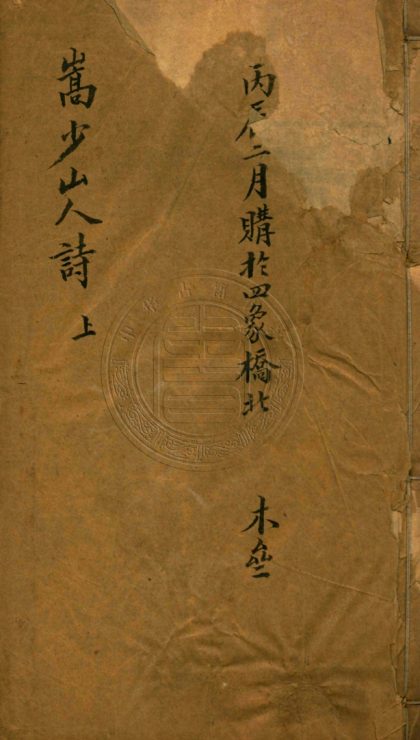 丙辰二月購於四象橋北 木
嵩少山人詩 上